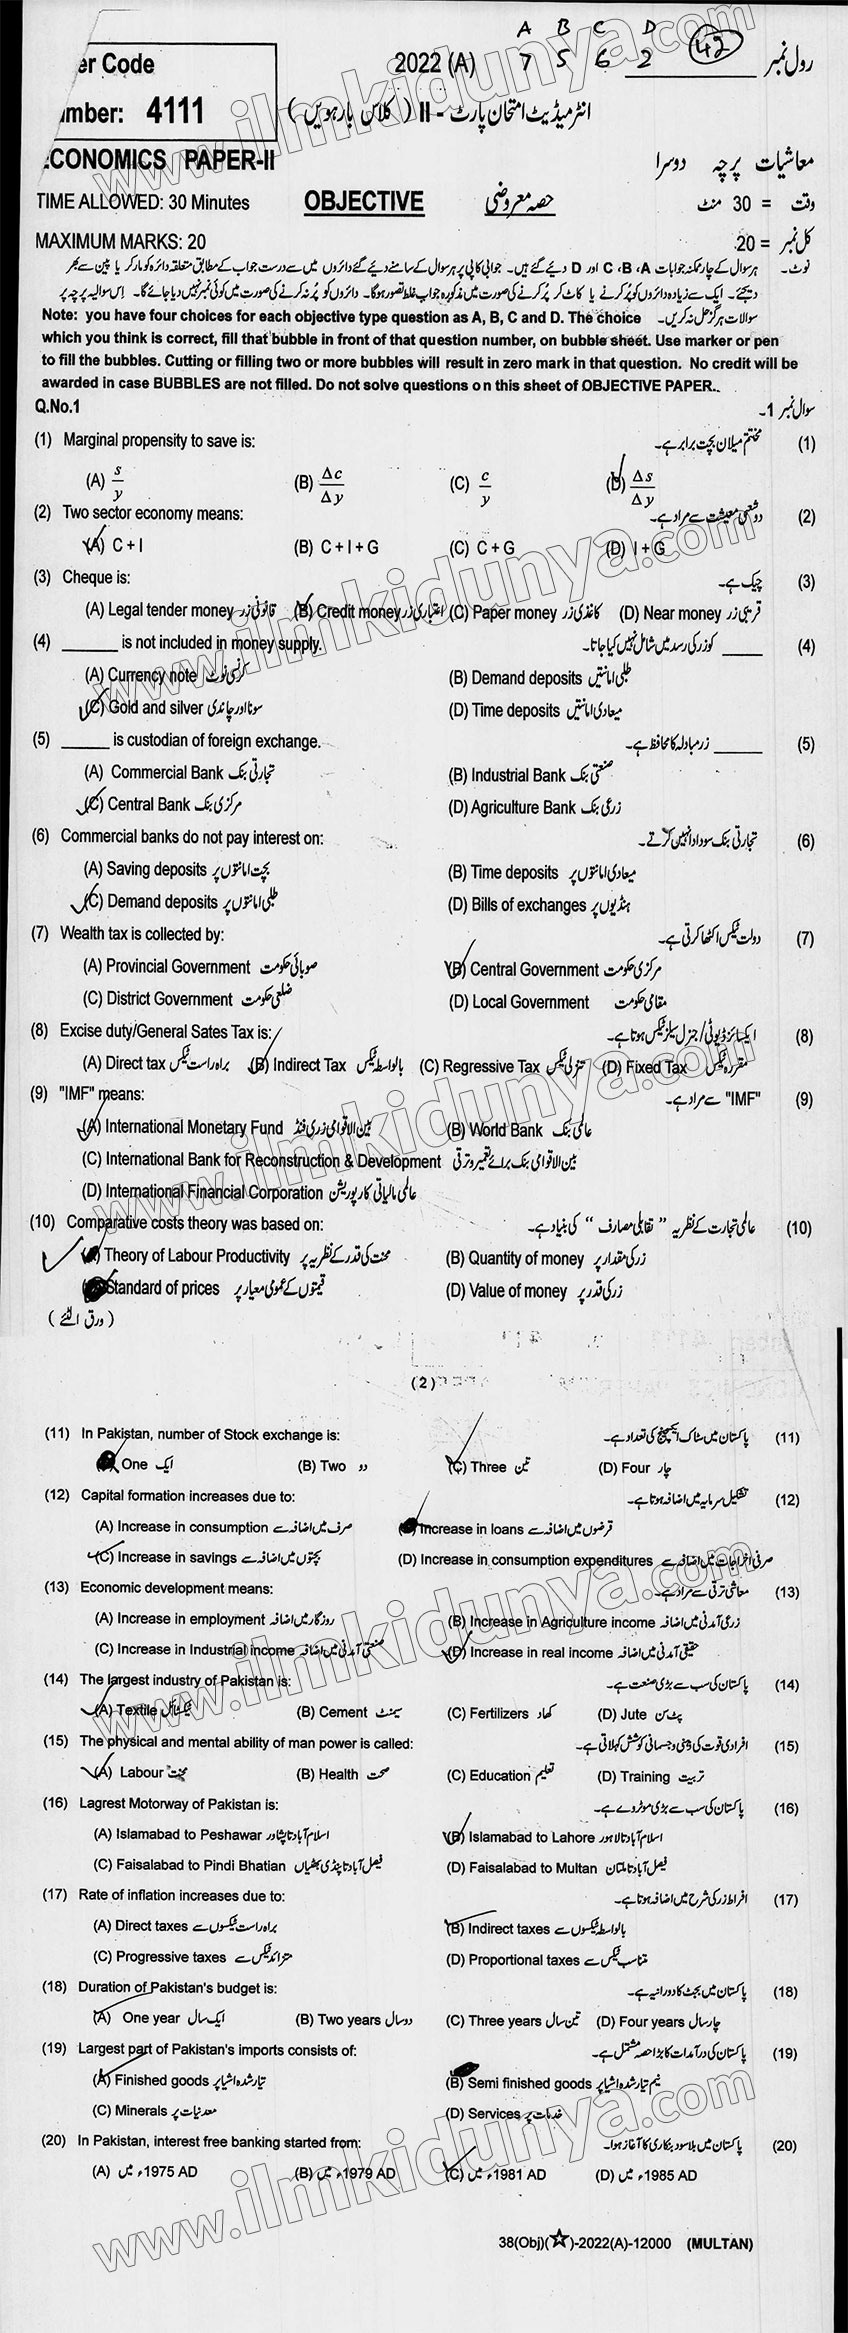 A B C D
7 5 6 2 42
er Code 2022 (A) رول نمبر
umber: 4111 انٹرمیڈیٹ امتحان پارٹ - II ( کلاس بارھویں )
ECONOMICS PAPER-II معاشیات پرچہ دوسرا
TIME ALLOWED: 30 Minutes OBJECTIVE حصہ معروضی وقت = 30 منٹ
MAXIMUM MARKS: 20 کل نمبر = 20
نوٹ۔ ہر سوال کے چار ممکنہ جوابات A، B، C اور D دیئے گئے ہیں۔ جوابی کاپی پر ہر سوال کے سامنے دیئے گئے دائروں میں سے درست جواب کے مطابق متعلقہ دائرہ کو مارکر یا پین سے بھر
دیجئے۔ ایک سے زیادہ دائروں کو پُر کرنے یا کاٹ کر پُر کرنے کی صورت میں مذکورہ جواب غلط تصور ہوگا۔ دائروں کو پُر نہ کرنے کی صورت میں کوئی نمبر نہیں دیا جائے گا۔ اِس سوالیہ پرچہ پر
سوالات ہرگز حل نہ کریں۔ Note: you have four choices for each objective type question as A, B, C and D. The choice
which you think is correct, fill that bubble in front of that question number, on bubble sheet. Use marker or pen
to fill the bubbles. Cutting or filling two or more bubbles will result in zero mark in that question. No credit will be
awarded in case BUBBLES are not filled. Do not solve questions on this sheet of OBJECTIVE PAPER.
Q.No.1 سوال نمبر 1۔
(1) Marginal propensity to save is: مختتم میلان بچت برابر ہے۔ (1)
(A) s/y (B) Δc/Δy (C) c/y (D) Δs/Δy
(2) Two sector economy means: دو شعبی معیشت سے مراد ہے۔ (2)
(A) C + I (B) C + I + G (C) C + G (D) I + G
(3) Cheque is: چیک ہے۔ (3)
(A) Legal tender money قانونی زر (B) Credit money اعتباری زر (C) Paper money کاغذی زر (D) Near money قریبی زر
(4) ______ is not included in money supply. ______ کو زر کی رسد میں شامل نہیں کیا جاتا۔ (4)
(A) Currency note کرنسی نوٹ (B) Demand deposits طلبی امانتیں
(C) Gold and silver سونا اور چاندی (D) Time deposits میعادی امانتیں
(5) ______ is custodian of foreign exchange. ______ زر مبادلہ کا محافظ ہے۔ (5)
(A) Commercial Bank تجارتی بنک (B) Industrial Bank صنعتی بنک
(C) Central Bank مرکزی بنک (D) Agriculture Bank زرعی بنک
(6) Commercial banks do not pay interest on: تجارتی بنک سود ادا نہیں کرتے۔ (6)
(A) Saving deposits بچت امانتوں پر (B) Time deposits میعادی امانتوں پر
(C) Demand deposits طلبی امانتوں پر (D) Bills of exchanges ہنڈیوں پر
(7) Wealth tax is collected by: دولت ٹیکس اکٹھا کرتی ہے۔ (7)
(A) Provincial Government صوبائی حکومت (B) Central Government مرکزی حکومت
(C) District Government ضلعی حکومت (D) Local Government مقامی حکومت
(8) Excise duty/General Sates Tax is: ایکسائز ڈیوٹی/جنرل سیلز ٹیکس ہوتا ہے۔ (8)
(A) Direct tax براہ راست ٹیکس (B) Indirect Tax بالواسطہ ٹیکس (C) Regressive Tax تنزلی ٹیکس (D) Fixed Tax مقررہ ٹیکس
(9) "IMF" means: "IMF" سے مراد ہے۔ (9)
(A) International Monetary Fund بین الاقوامی زری فنڈ (B) World Bank عالمی بنک
(C) International Bank for Reconstruction & Development بین الاقوامی بنک برائے تعمیر و ترقی
(D) International Financial Corporation عالمی مالیاتی کارپوریشن
(10) Comparative costs theory was based on: عالمی تجارت کے نظریہ " تقابلی مصارف " کی بنیاد ہے۔ (10)
Theory of Labour Productivity محنت کی قدر کے نظریہ پر (B) Quantity of money زر کی مقدار پر
Standard of prices قیمتوں کے عمومی معیار پر (D) Value of money زر کی قدر پر
( ورق الٹئے )
(2)
(11) In Pakistan, number of Stock exchange is: پاکستان میں سٹاک ایکسچینج کی تعداد ہے۔ (11)
One ایک (B) Two دو (C) Three تین (D) Four چار
(12) Capital formation increases due to: تشکیل سرمایہ میں اضافہ ہوتا ہے۔ (12)
(A) Increase in consumption صرف میں اضافہ سے Increase in loans قرضوں میں اضافہ سے
(C) Increase in savings بچتوں میں اضافہ سے (D) Increase in consumption expenditures صرفی اخراجات میں اضافہ سے
(13) Economic development means: معاشی ترقی سے مراد ہے۔ (13)
(A) Increase in employment روزگار میں اضافہ (B) Increase in Agriculture income زرعی آمدنی میں اضافہ
(C) Increase in Industrial income صنعتی آمدنی میں اضافہ (D) Increase in real income حقیقی آمدنی میں اضافہ
(14) The largest industry of Pakistan is: پاکستان کی سب سے بڑی صنعت ہے۔ (14)
(A) Textile ٹیکسٹائل (B) Cement سیمنٹ (C) Fertilizers کھاد (D) Jute پٹ سن
(15) The physical and mental ability of man power is called: افرادی قوت کی ذہنی و جسمانی کوشش کہلاتی ہے۔ (15)
(A) Labour محنت (B) Health صحت (C) Education تعلیم (D) Training تربیت
(16) Lagrest Motorway of Pakistan is: پاکستان کی سب سے بڑی موٹروے ہے۔ (16)
(A) Islamabad to Peshawar اسلام آباد تا پشاور (B) Islamabad to Lahore اسلام آباد تا لاہور
(C) Faisalabad to Pindi Bhatian فیصل آباد تا پنڈی بھٹیاں (D) Faisalabad to Multan فیصل آباد تا ملتان
(17) Rate of inflation increases due to: افراط زر کی شرح میں اضافہ ہوتا ہے۔ (17)
(A) Direct taxes براہ راست ٹیکسوں سے (B) Indirect taxes بالواسطہ ٹیکسوں سے
(C) Progressive taxes متزائد ٹیکس سے (D) Proportional taxes متناسب ٹیکس سے
(18) Duration of Pakistan's budget is: پاکستان میں بجٹ کا دورانیہ ہے۔ (18)
(A) One year ایک سال (B) Two years دو سال (C) Three years تین سال (D) Four years چار سال
(19) Largest part of Pakistan's imports consists of: پاکستان کی درآمدات کا بڑا حصہ مشتمل ہے۔ (19)
(A) Finished goods تیار شدہ اشیا پر (B) Semi finished goods نیم تیار شدہ اشیا پر
(C) Minerals معدنیات پر (D) Services خدمات پر
(20) In Pakistan, interest free banking started from: پاکستان میں بلاسود بنکاری کا آغاز ہوا۔ (20)
(A) 1975 AD ء میں (B) 1979 AD ء میں (C) 1981 AD ء میں (D) 1985 AD ء میں
38(Obj)(☆)-2022(A)-12000 (MULTAN)
www.ilmkidunya.com
www.ilmkidunya.com
www.ilmkidunya.com
www.ilmkidunya.com
www.ilmkidunya.com